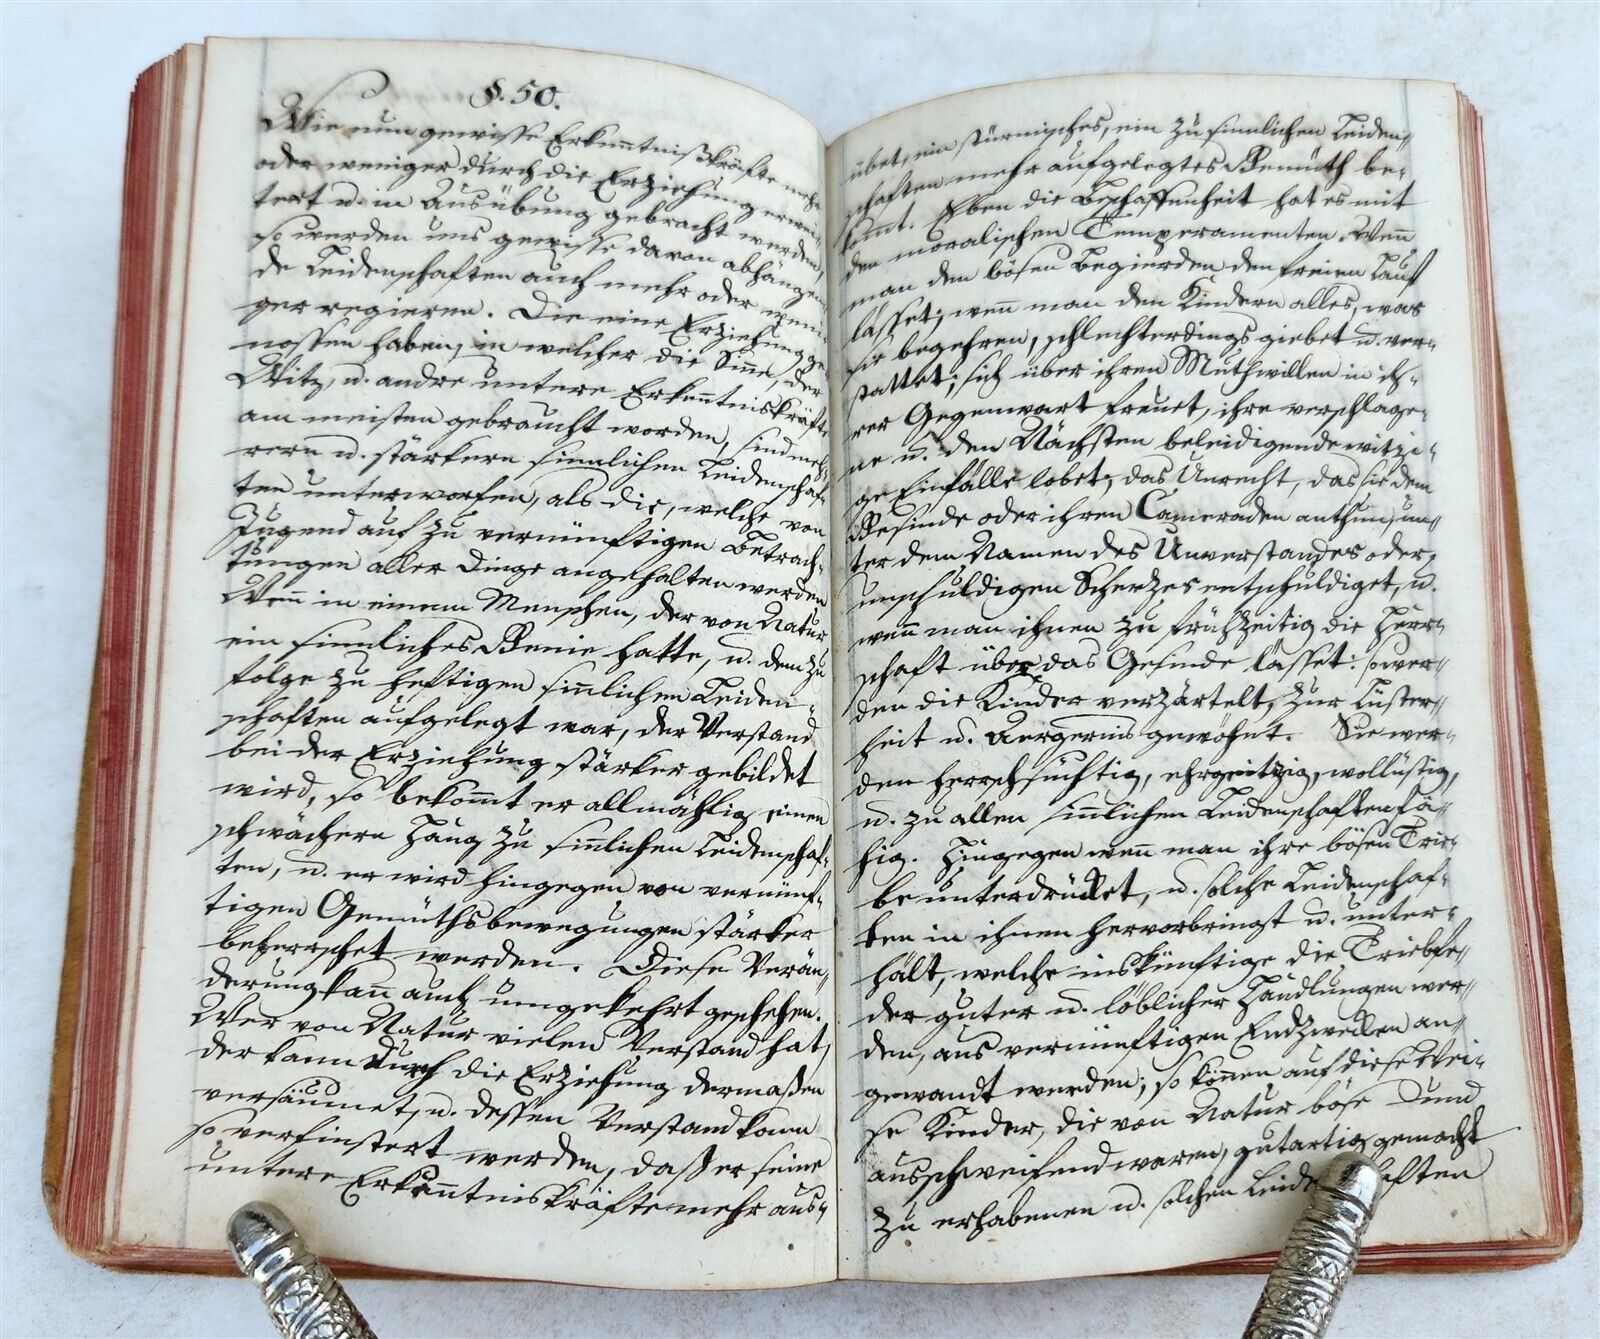 §. 50.
Wie nun gewisse Erkenntnißkräfte mehr
oder weniger durch die Erziehung erwei-
tert u. in Ausübung gebracht werden,
so werden uns gewisse davon abhängen-
de Leidenschaften auch mehr oder weni-
ger regieren. Die eine Erziehung ge-
nossen haben, in welcher die Sinne, der
Witz, u. andre untere Erkenntniskräfte
am meisten gebraucht worden, sind meh-
rern u. stärkern sinnlichen Leidenschaf-
ten unterworfen, als die, welche von
Jugend auf zu vernünftigen Betrach-
tungen aller Dinge angehalten werden
Wenn in einem Menschen, der von Natur
ein sinnliches Genie hatte, u. dem zu
folge zu heftigen sinnlichen Leiden-
schaften aufgelegt war, der Verstand
bei der Erziehung stärker gebildet
wird, so bekommt er allmählig einen
schwächern Hang zu sinnlichen Leidenschaf-
ten, u. er wird hingegen von vernünf-
tigen Gemüthsbewegungen stärker
beherrschet werden. Diese Verän-
derung kann auch umgekehrt geschehen.
Wer von Natur vielen Verstand hat,
der kann durch die Erziehung dermaßen
versäumet, u. dessen Verstand kann
so verfinstert werden, daß er seine
untere Erkenntniskräfte mehr aus-
übet, ein stürmisches, ein zu sinnlichen Leiden-
schaften mehr aufgelegtes Gemüth be-
kommt. Eben die Beschaffenheit hat es mit
den moralischen Temperamenten. Wenn
man den bösen Begierden den freien Lauf
lasset; wenn man den Kindern alles, was
sie begehren, schlechterdings giebet u. ver-
stattet; sich über ihren Muthwillen in ih-
rer Gegenwart freuet, ihre verschlage-
ne u. den Nächsten beleidigende witzi-
ge Einfälle lobet; das Unrecht, das sie dem
Gesinde oder ihren Cameraden anthun, un-
ter dem Namen des Unverstandes oder
unschuldigen Scherzes entschuldiget, u.
wenn man ihnen zu frühzeitig die Herr-
schaft über das Gesinde lässet: so wer-
den die Kinder verzärtelt, zur Lüstern-
heit u. Aergernis gewöhnt. Sie wer-
den herrschsüchtig, ehrgeitzig, wollüstig,
u. zu allen sinnlichen Leidenschaften fä-
hig. Hingegen wenn man ihre bösen Trie-
be unterdrücket, u. solche Leidenschaf-
ten in ihnen hervorbringt u. unter-
hält, welche inskünftige die Triebfe-
der guter u. löblicher Handlungen wer-
den, aus vernünftigen Endzwecken an-
gewandt werden; so können auf diese Wei-
se Kinder, die von Natur böse und
ausschweifend waren, gutartig gemacht
zu erhabenen u. solchen